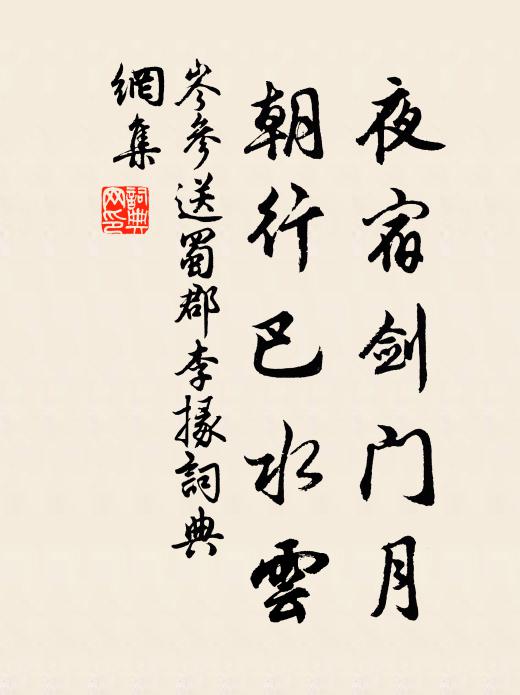 夜宿剑门月
朝行巴水雲
岑參送蜀郡李掾詞典
網集
詞典网印